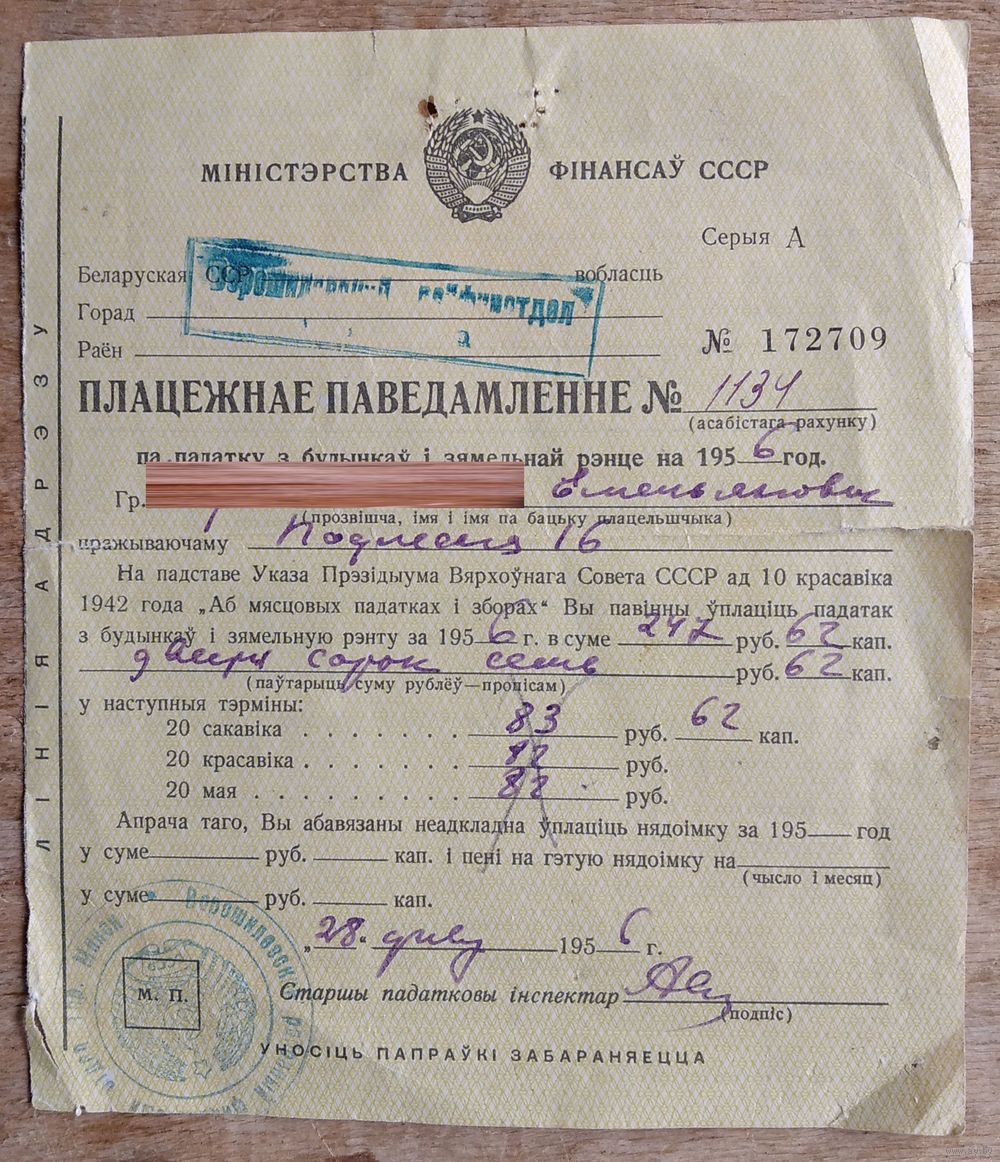 МІНІСТЭРСТВА ФІНАНСАЎ СССР
Серыя А
Беларуская ССР вобласць
Горад
Раён
№ 172709
ПЛАЦЕЖНАЕ ПАВЕДАМЛЕННЕ № 1134
(асабістага рахунку)
па падатку з будынкаў і зямельнай рэнце на 1956 год.
Гр. Емельянович
(прозвішча, імя і імя па бацьку плацельшчыка)
пражываючаму 16
На падставе Указа Прэзідыума Вярхоўнага Совета СССР ад 10 красавіка
1942 года „Аб мясцовых падатках і зборах“ Вы павінны ўплаціць падатак
з будынкаў і зямельную рэнту за 1956 г. в суме 247 руб. 62 кап.
двести сорок семь руб. 62 кап.
(паўтарыць суму рублёў—пропісам)
у наступныя тэрміны:
20 сакавіка 83 руб. 62 кап.
20 красавіка 82 руб.
20 мая 82 руб.
Апрача таго, Вы абавязаны неадкладна ўплаціць нядоімку за 195 год
у суме руб. кап. і пені на гэтую нядоімку на
(чысло і месяц)
у суме руб. кап.
„28“ 1956 г.
М. П.
Старшы падатковы інспектар
(подпіс)
УНОСІЦЬ ПАПРАЎКІ ЗАБАРАНЯЕЦЦА
ЛІНІЯ АДРЭЗУ